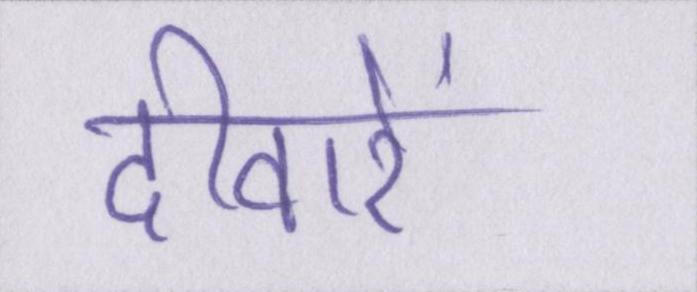 दीवारें